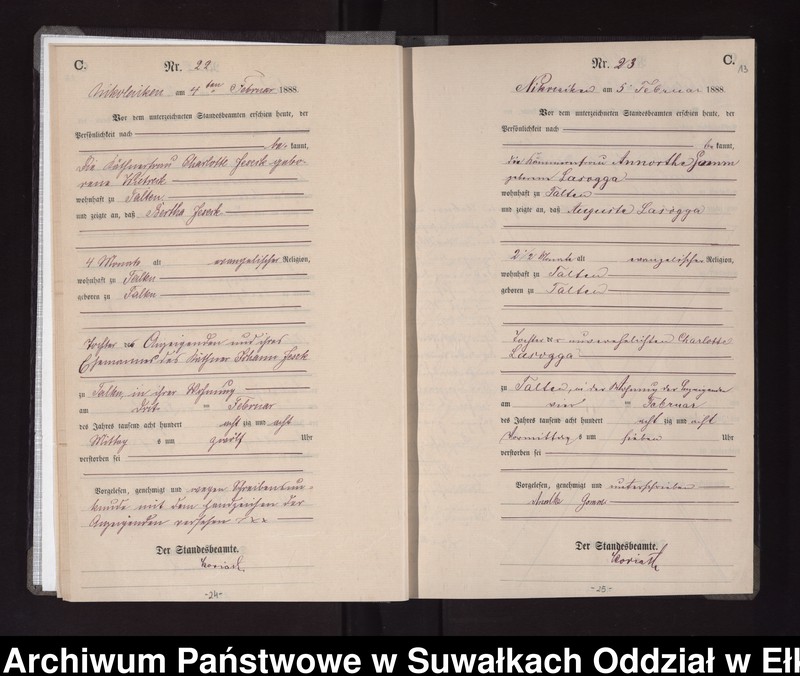 C.
Nr. 22
Nikolaiken am 4 ten Februar 1888.
Vor dem unterzeichneten Standesbeamten erschien heute, der
Persönlichkeit nach
be kannt,
die Käthnerfrau Charlotte Jeseck gebo-
rene
wohnhaft zu Talten
und zeigte an, daß Bertha Jeseck
4 Monate alt evangelischer Religion,
wohnhaft zu Talten
geboren zu Talten
Tochter der Anzeigenden und ihres
Ehemannes des Käthner Johann Jeseck
zu Talten, in ihrer Wohnung
am drit Februar
des Jahres tausend acht hundert acht zig und acht
Mittag s um zwölf Uhr
verstorben sei
Vorgelesen, genehmigt und wegen Schreibensun-
kunde mit dem Handzeichen der
Anzeigenden versehen xxx
Der Standesbeamte.
Koriath
-24-
C.
13
Nr. 23
Nikolaiken am 5 Februar 1888
Vor dem unterzeichneten Standesbeamten erschien heute, der
Persönlichkeit nach
be kannt,
die
geborene Lasogga
wohnhaft zu Talten
und zeigte an, daß Auguste Lasogga
2 1/2 Monate alt evangelischer Religion,
wohnhaft zu Talten
geboren zu Talten
Tochter der unverehelichten Charlotte
Lasogga
zu Talten, in der Wohnung der Anzeigende
am vier Februar
des Jahres tausend acht hundert acht zig und acht
Vormittag s um sieben Uhr
verstorben sei
Vorgelesen, genehmigt und unterschrieben
Der Standesbeamte.
Koriath
-25-
Archiwum Państwowe w Suwałkach Oddział w Ełk